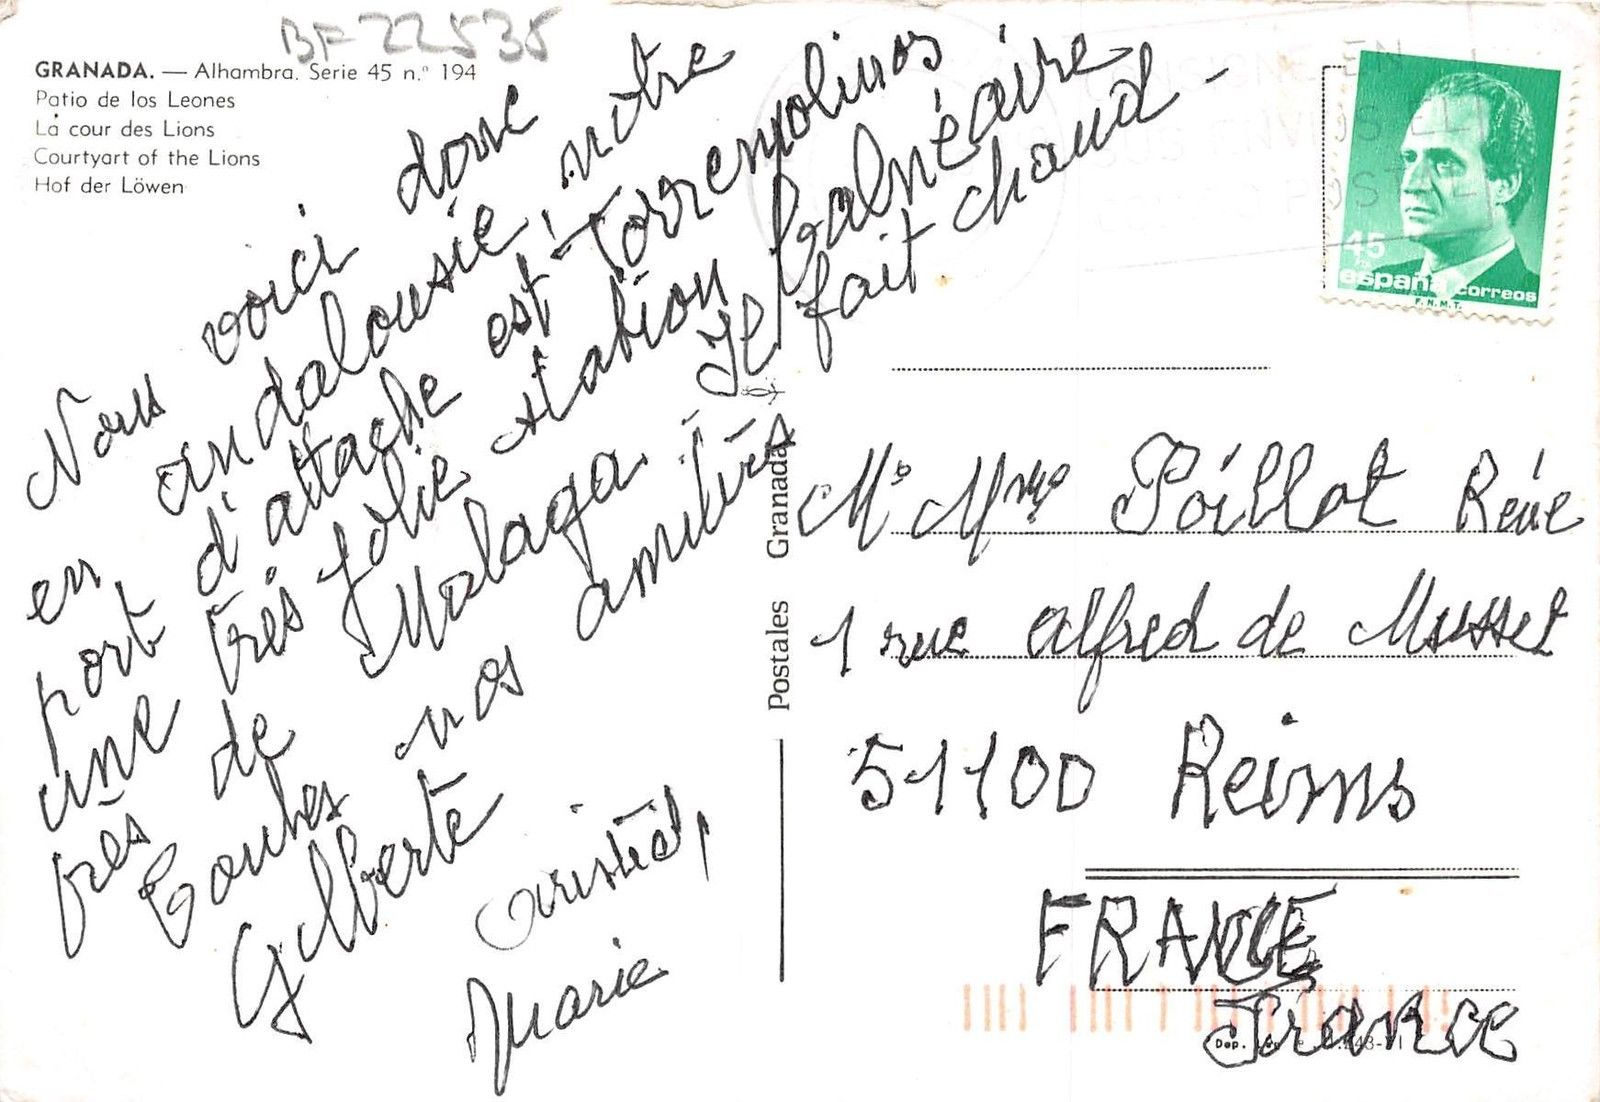 BF 22535
GRANADA. — Alhambra. Serie 45 n.° 194
Patio de los Leones
La cour des Lions
Courtyart of the Lions
Hof der Löwen
Nous voici donc
en andalousie, notre
port d'attache est Torremolinos
une très jolie station balnéaire
près de Malaga. Il fait chaud -
Toutes nos amitiés
Gilberte
Marie
Postales Granada
45
españa correos
F.N.M.T.
M. Mme Poillot Réné
1 rue alfred de Musset
51100 Reims
FRANCE
France